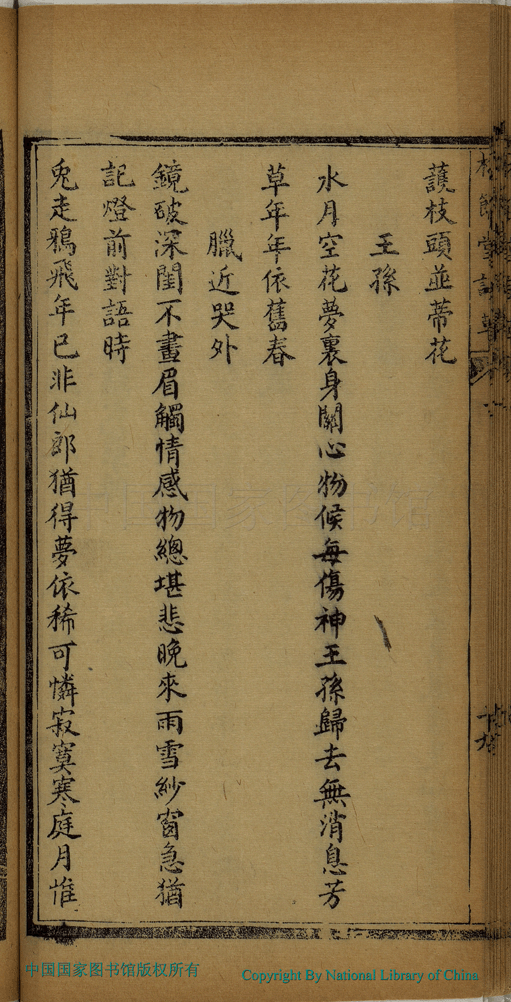 護枝頭並蒂花
王孫
水月空花夢裏身關心物候每傷神王孫歸去無消息芳
草年年依舊春
臘近哭外
鏡破深閨不畫眉觸情感物總堪悲晚來雨雪紗窗急猶
記燈前對語時
兎走鴉飛年已非仙郎猶得夢依稀可憐寂寞寒庭月惟
中国国家图书馆版权所有
Copyright By National Library of China